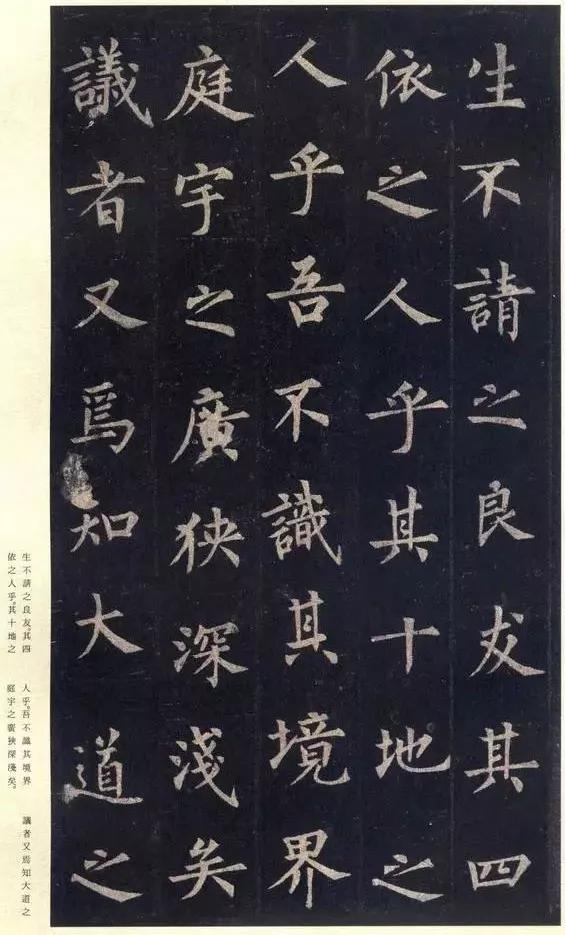 生不請之良友其四
依之人乎其十地之
人乎吾不識其境界
庭宇之廣狹深淺矣
議者又焉知大道之
生不請之良友。其四
依之人乎。其十地之
人乎。吾不識其境界
庭宇之廣狹深淺矣。
議者又焉知大道之